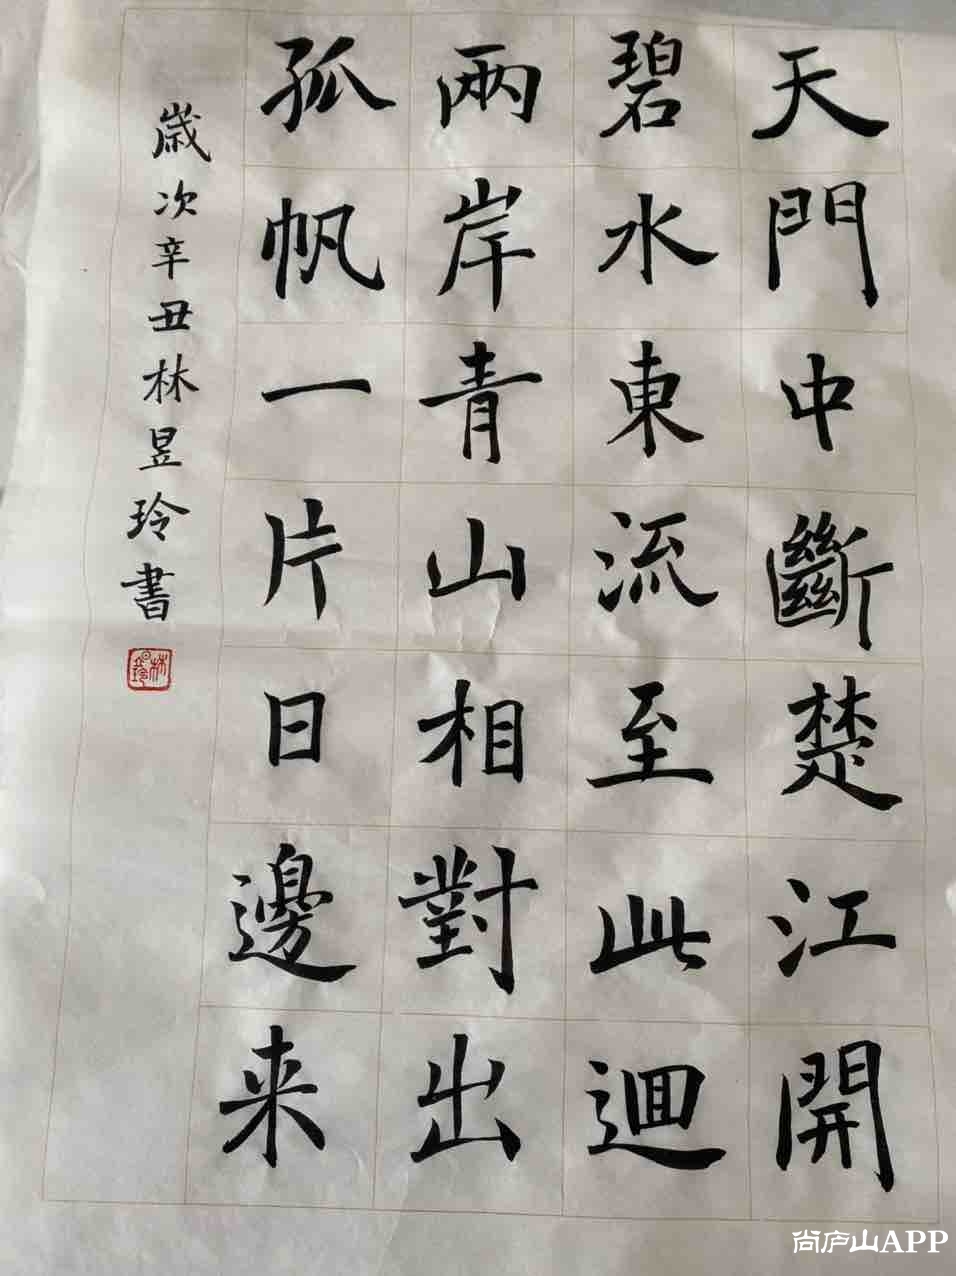 天門中斷楚江開
碧水東流至此迴
兩岸青山相對出
孤帆一片日邊来
歲次辛丑林昱玲書
林昱玲
尚庐山APP